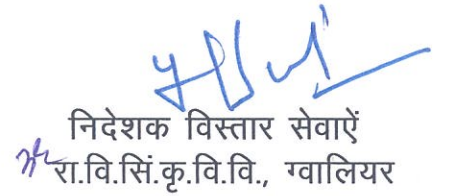 निदेशक विस्तार सेवाऐं
रा.वि.सिं.कृ.वि.वि., ग्वालियर